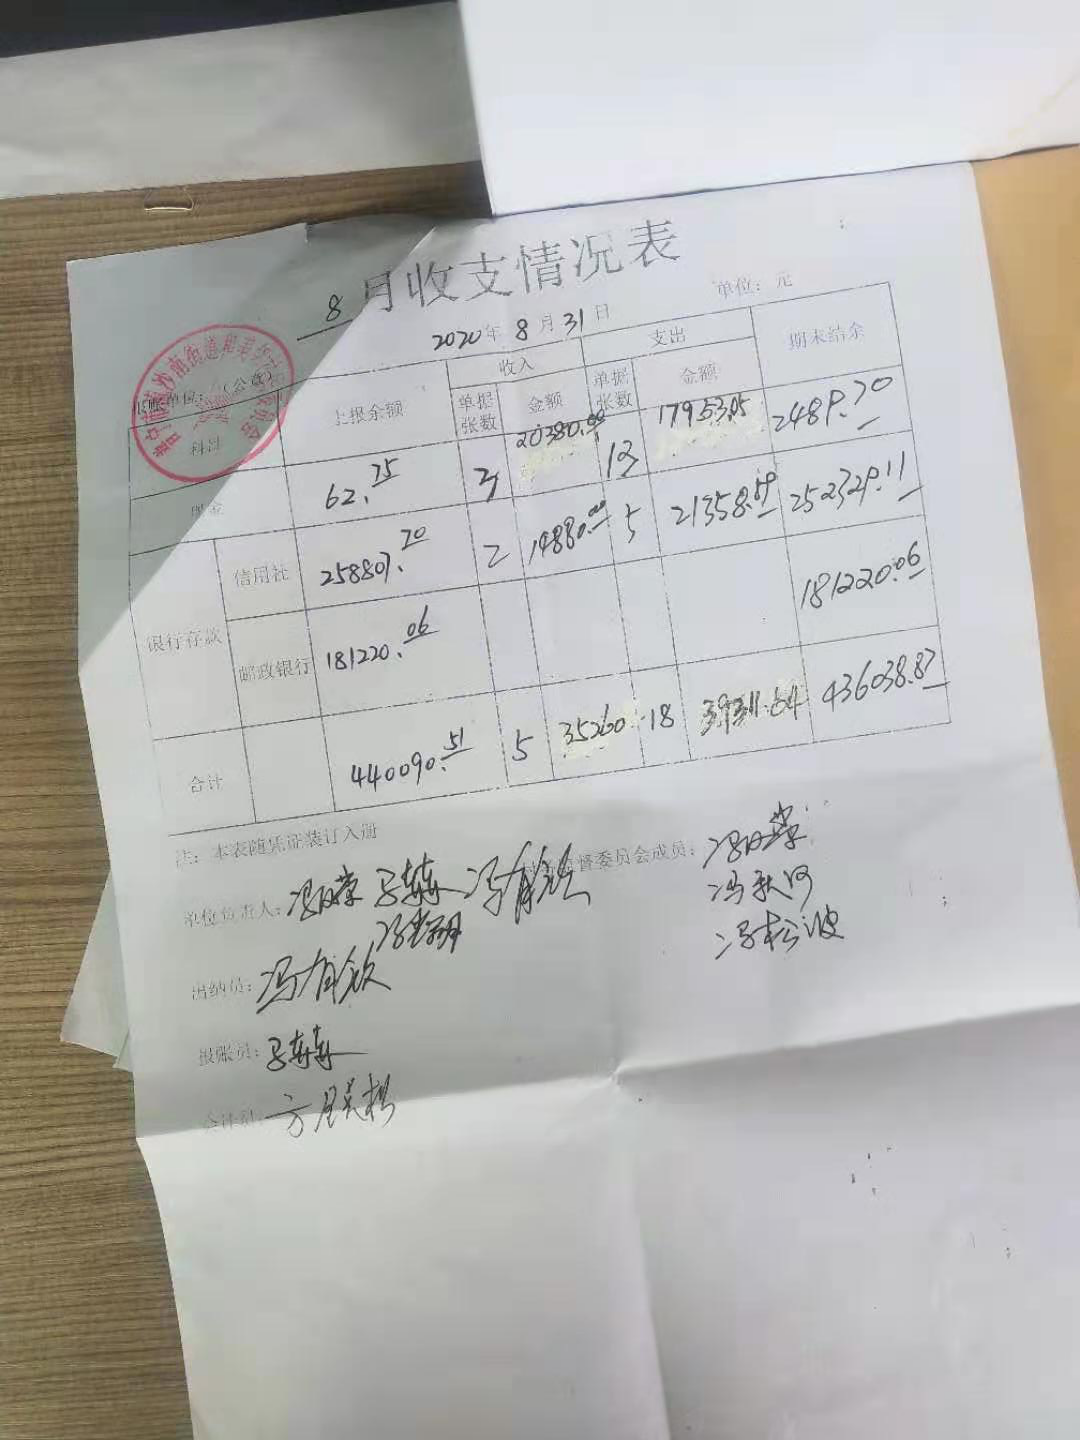 8月收支情况表
2020年8月31日 单位：元
（公章）
科目 上报余额 收入 支出 期末结余
单据张数 金额 单据张数 金额
现金 62.75 3 20380.00 13 17953.05 2489.70
银行存款 信用社 258807.70 2 14880.00 5 21358.59 252329.11
邮政银行 181220.06 181220.06
合计 440090.51 5 35260. 18 39311.64 436038.87
注：本表随凭证装订入册
单位负责人： 督委员会成员：
冯秋河
冯松波
出纳员：冯有钦
报账员：
会计员：